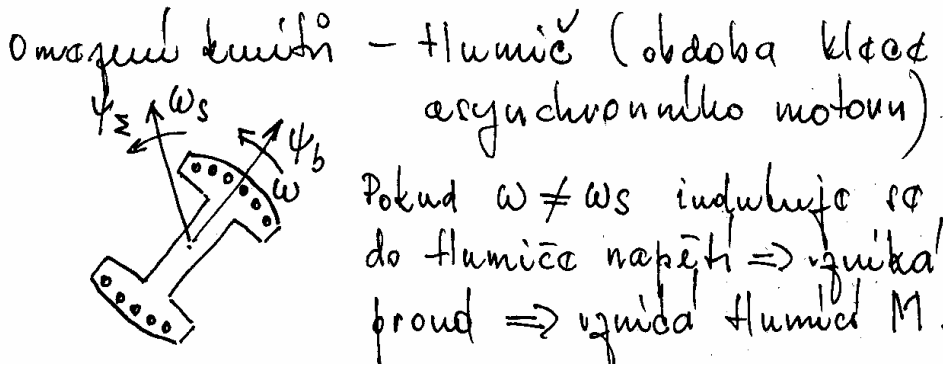 Omezení kmitů – tlumič (obdoba klece
asynchronního motoru)
ψΣ ωs
ψb
ω
Pokud ω ≠ ωs indukuje se
do tlumiče napětí ⇒ vzniká
proud ⇒ vzniká tlumicí M.